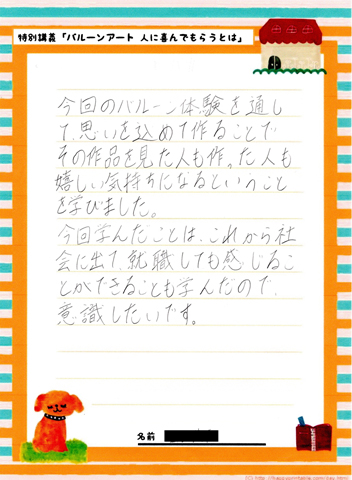 特別講義「バルーンアート 人に喜んでもらうとは」
今回のバルーン体験を通し
て、思いを込めて作ることで
その作品を見た人も作った人も
嬉しい気持ちになるということ
を学びました。
今回学んだことは、これから社
会に出て、就職しても感じるこ
とができることも学んだので、
意識したいです。
名前